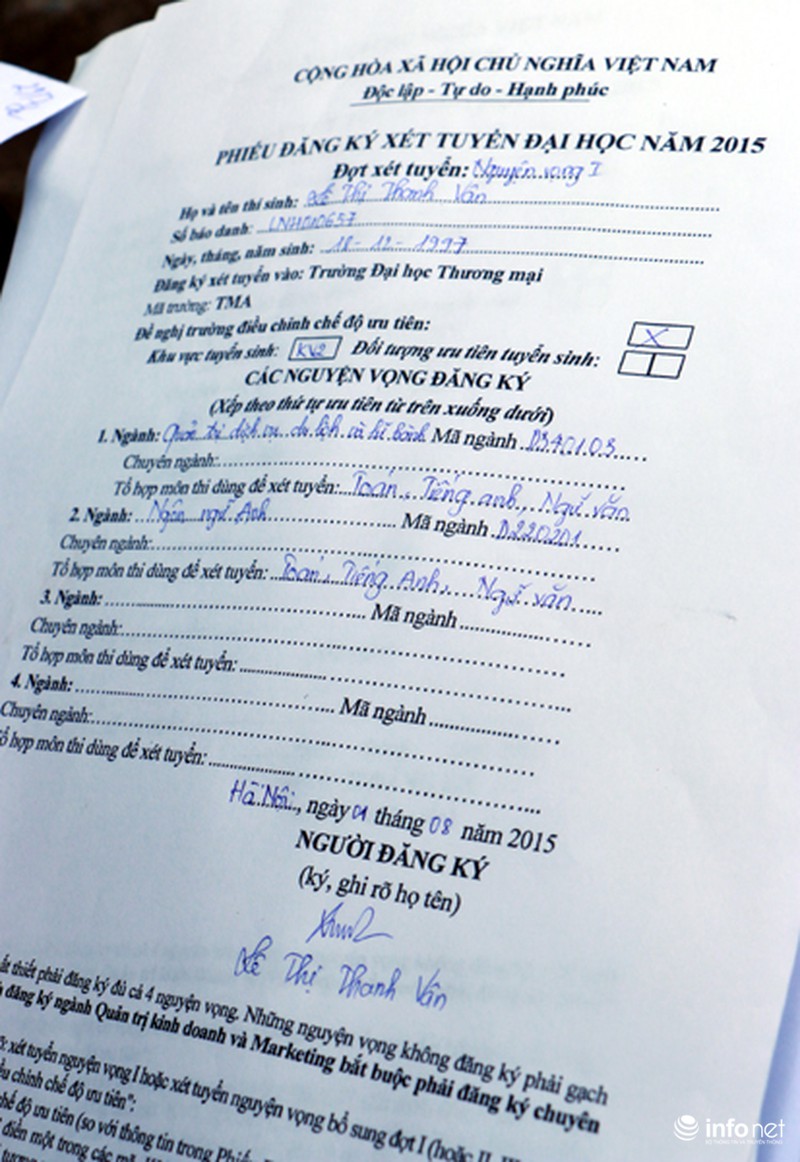 CỘNG HÒA XÃ HỘI CHỦ NGHĨA VIỆT NAM
Độc lập - Tự do - Hạnh phúc
PHIẾU ĐĂNG KÝ XÉT TUYỂN ĐẠI HỌC NĂM 2015
Đợt xét tuyển: Nguyện vọng I
Họ và tên thí sinh: Lê Thị Thanh Vân
Số báo danh: LNH010657
Ngày, tháng, năm sinh: 18 - 12 - 1997
Đăng ký xét tuyển vào: Trường Đại học Thương mại
Mã trường: TMA
Đề nghị trường điều chỉnh chế độ ưu tiên: X
Khu vực tuyển sinh: KV2 Đối tượng ưu tiên tuyển sinh:
CÁC NGUYỆN VỌNG ĐĂNG KÝ
(Xếp theo thứ tự ưu tiên từ trên xuống dưới)
1. Ngành: Quản trị dịch vụ du lịch và lữ hành Mã ngành D340103
Chuyên ngành:
Tổ hợp môn thi dùng để xét tuyển: Toán, Tiếng anh, Ngữ văn
2. Ngành: Ngôn ngữ Anh Mã ngành D220201
Chuyên ngành:
Tổ hợp môn thi dùng để xét tuyển: Toán, Tiếng Anh, Ngữ văn
3. Ngành: Mã ngành
Chuyên ngành:
Tổ hợp môn thi dùng để xét tuyển:
4. Ngành: Mã ngành
Chuyên ngành:
Tổ hợp môn thi dùng để xét tuyển:
Hà Nội, ngày 01 tháng 08 năm 2015
NGƯỜI ĐĂNG KÝ
(ký, ghi rõ họ tên)
Lê Thị Thanh Vân
thiết phải đăng ký đủ cả 4 nguyện vọng. Những nguyện vọng không đăng ký phải gạch
đăng ký ngành Quản trị kinh doanh và Marketing bắt buộc phải đăng ký chuyên
xét tuyển nguyện vọng I hoặc xét tuyển nguyện vọng bổ sung đợt I (hoặc II
chỉnh chế độ ưu tiên";
độ ưu tiên (so với thông tin trong
điền một trong các mã
infonet